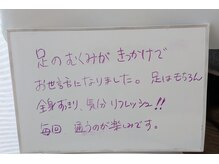 足のむくみがきっかけで
お世話になりました。足はもちろん
全身すっきり、気分リフレッシュ!!
毎回 通うのが楽しみです。